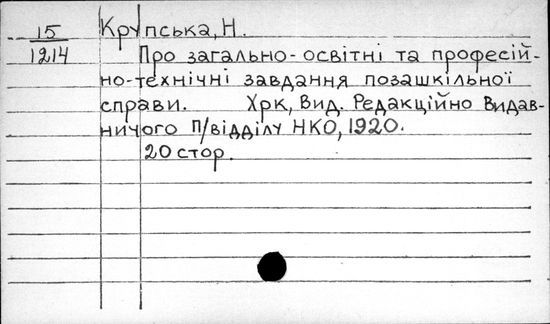 15
1214
Крупська, Н.
Про загально-освітні та професій-
но-технічні завдання позашкільної
справи. Хрк, Вид. Редакційно Видав-
ничого п/відділу НКО, 1920.
20 стор.